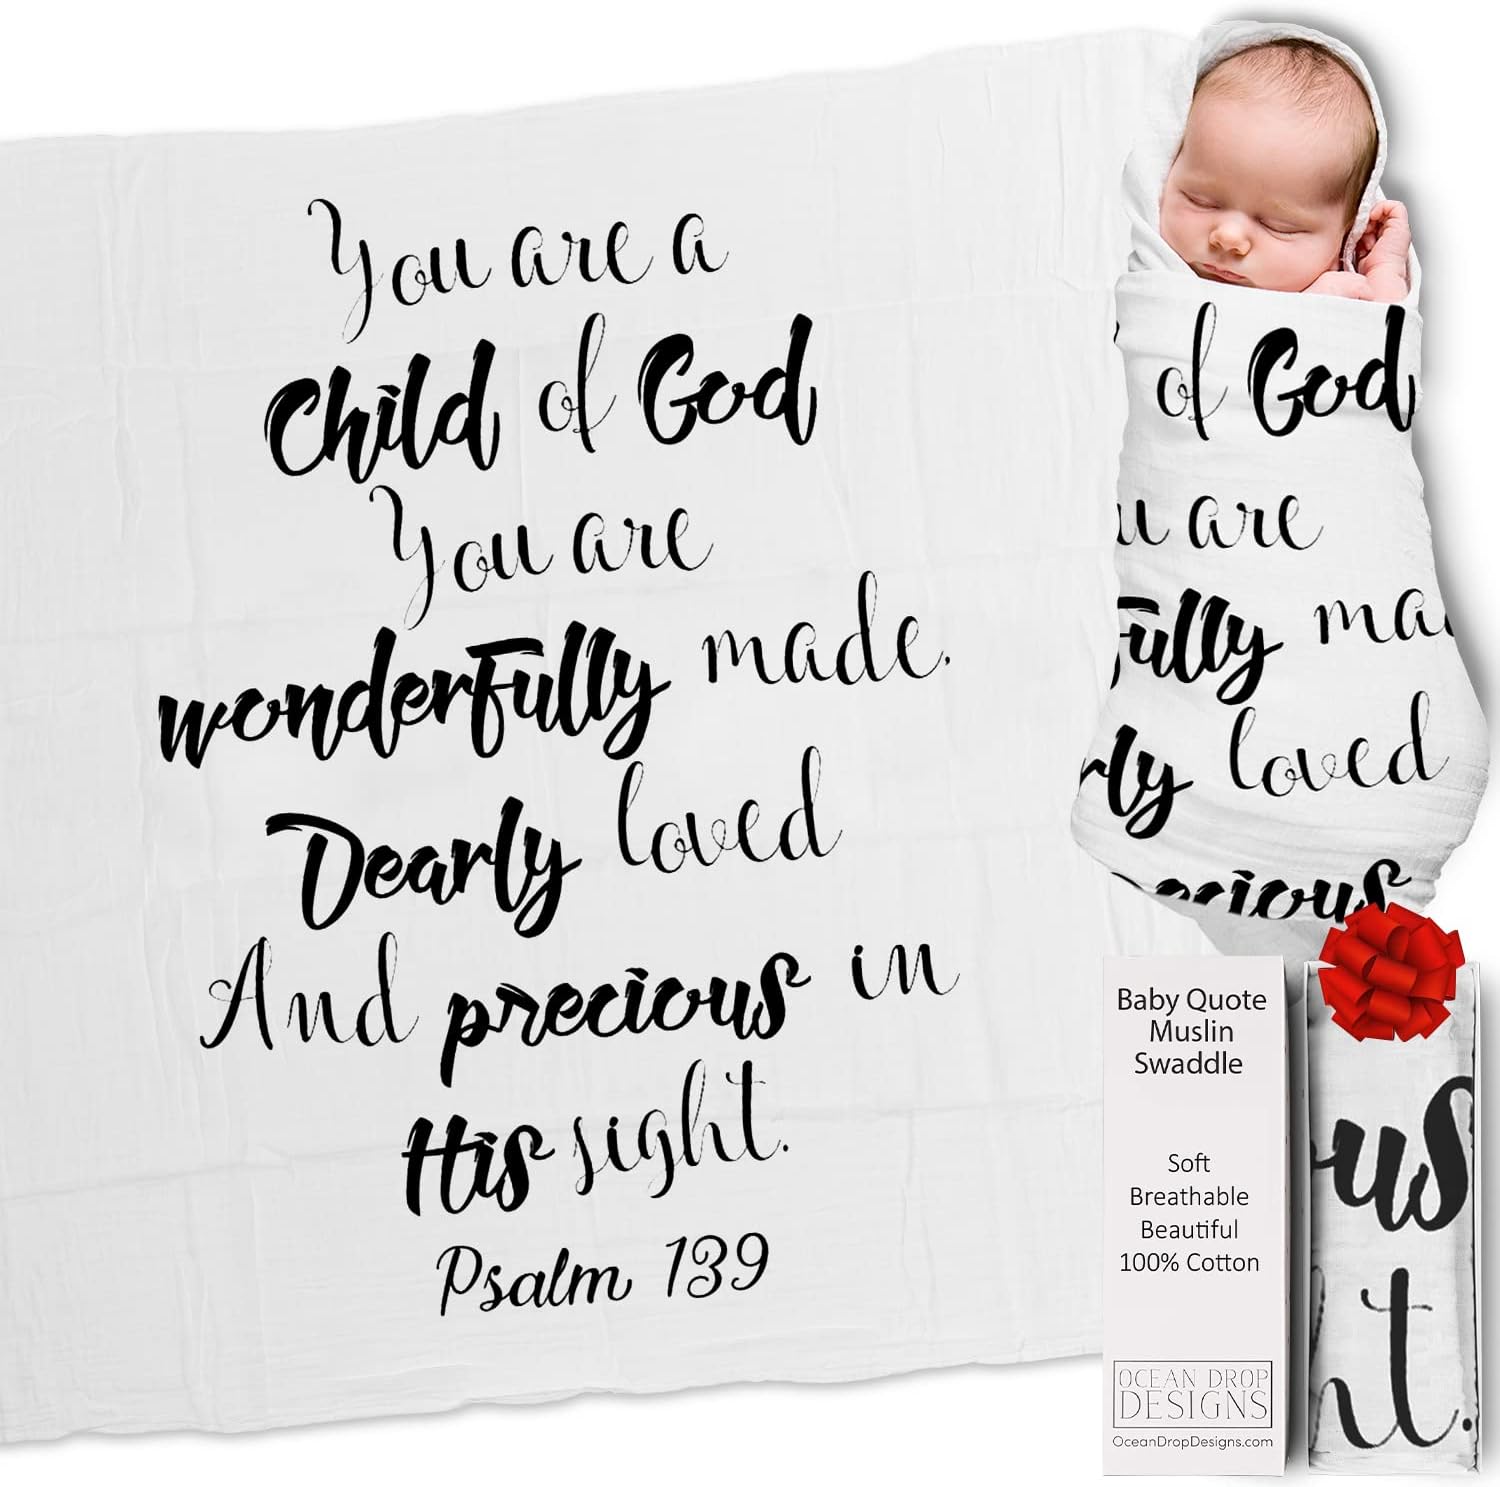 You are a
Child of God
You are
wonderfully made.
Dearly loved
And precious in
His sight.
Psalm 139
of God
u are
fully ma
rly loved
ecious
Baby Quote
Muslin
Swaddle
Soft
Breathable
Beautiful
100% Cotton
OCEAN DROP
DESIGNS
OceanDropDesigns.com
us
ht.